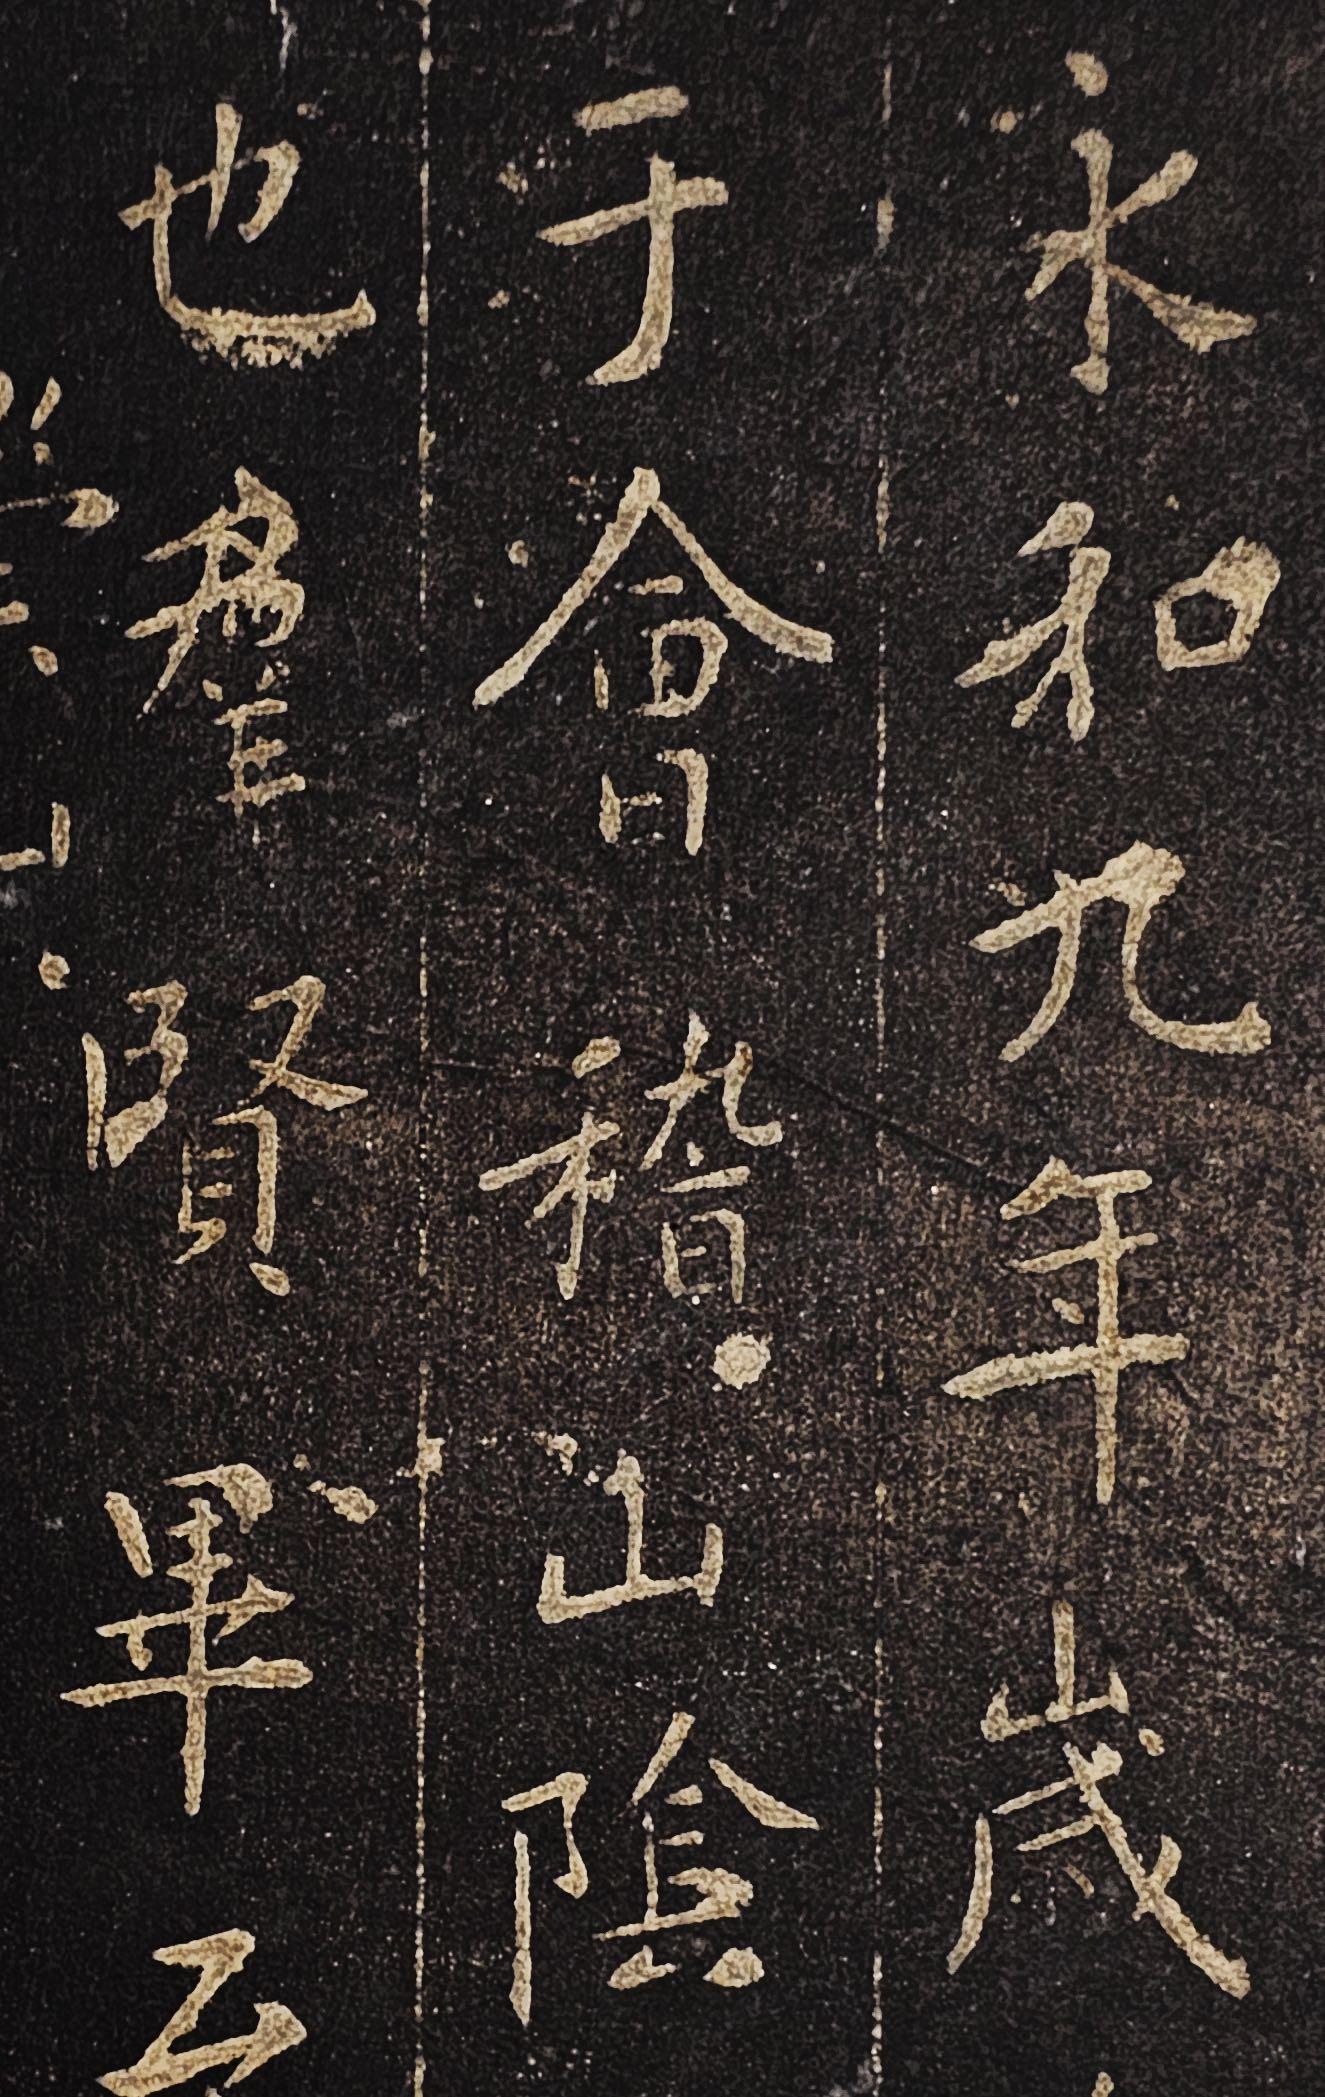 永和九年歲
于會稽山陰
也羣賢畢